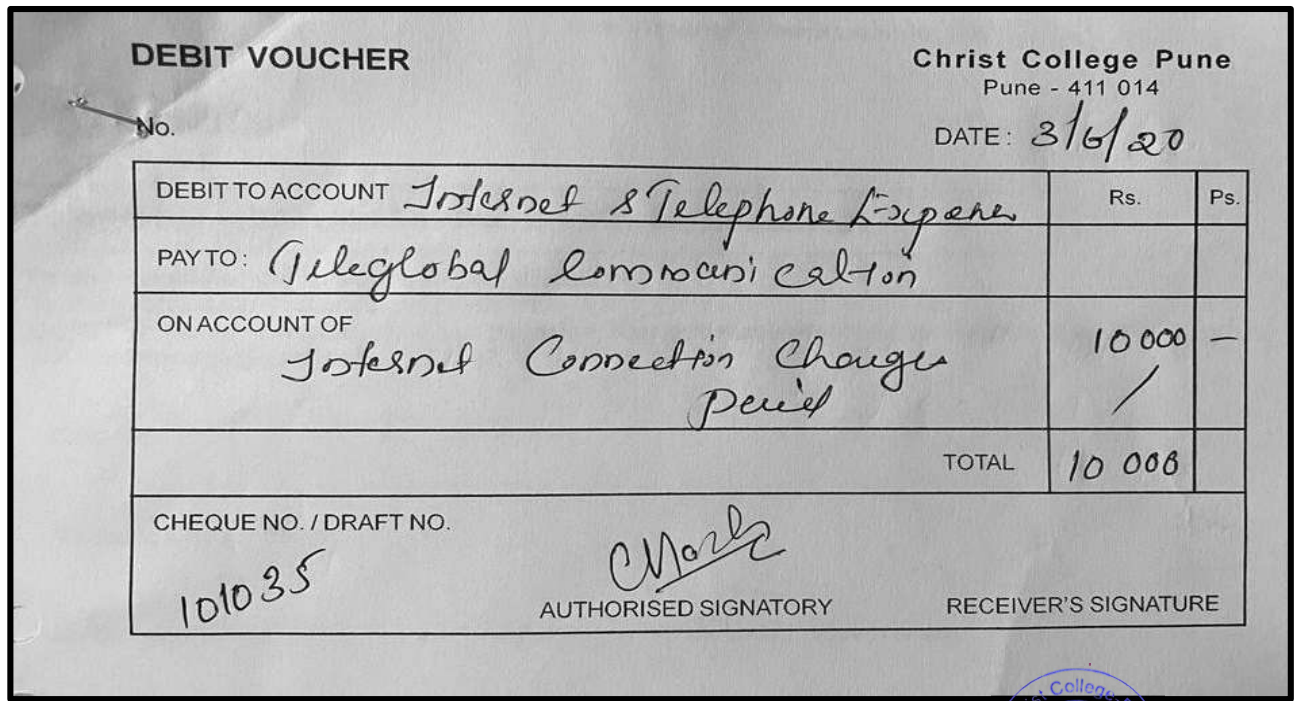 DEBIT VOUCHER
Christ College Pune
Pune - 411 014
No.
DATE: 3/6/20
DEBIT TO ACCOUNT Internet & Telephone Expenses
Rs. Ps.
PAY TO: Teleglobal Communication
ON ACCOUNT OF
Internet Connection Charges 10 000 —
paid
TOTAL 10 000
CHEQUE NO. / DRAFT NO.
101035
AUTHORISED SIGNATORY RECEIVER'S SIGNATURE
College